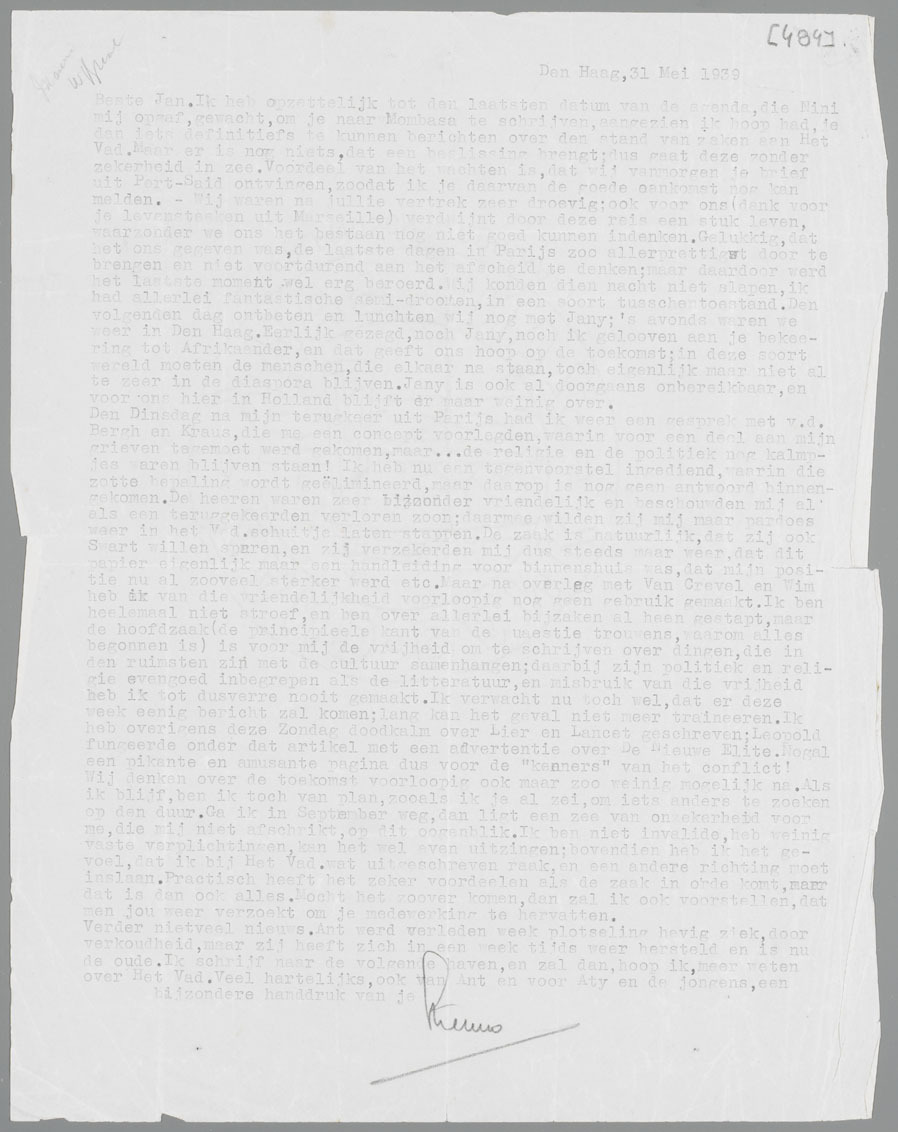 [484].
Den Haag,31 Mei 1939
Beste Jan.Ik heb opzettelijk tot den laatsten datum van de agenda,die Nini
mij opgaf,gewacht,om je naar Mombasa te schrijven,aangezien ik hoop had,je
dan iets definitiefs te kunnen berichten over den stand van zaken aan Het
Vad.Maar er is nog niets,dat een beslissing brengt;dus gaat deze zonder
zekerheid in zee.Voordeel van het wachten is,dat wij vanmorgen je brief
uit Port-Said ontvingen,zoodat ik je daarvan de goede aankomst nog kan
melden. - Wij waren na jullie vertrek zeer droevig;ook voor ons(dank voor
je levensteeken uit Marseille) verdwijnt door deze reis een stuk leven,
waarzonder we ons het bestaan nog niet goed kunnen indenken.Gelukkig,dat
het ons gegeven was,de laatste dagen in Parijs zoo allerprettigst door te
brengen en niet voortdurend aan het afscheid te denken;maar daardoor werd
het laatste moment wel erg beroerd.Wij konden dien nacht niet slapen,ik
had allerlei fantastische semi-droomen,in een soort tusschentoestand.Den
volgenden dag ontbeten en lunchten wij nog met Jany;'s avonds waren we
weer in Den Haag.Eerlijk gezegd,noch Jany,noch ik gelooven aan je bekee-
ring tot Afrikaander,en dat geeft ons hoop op de toekomst;in deze soort
wereld moeten de menschen,die elkaar na staan,toch eigenlijk maar niet al
te zeer in de diaspora blijven.Jany is ook al doorgaans onbereikbaar,en
voor ons hier in Holland blijft er maar weinig over.
Den Dinsdag na mijn terugkeer uit Parijs had ik weer een gesprek met v.d.
Bergh en Kraus,die me een concept voorlegden,waarin voor een deel aan mijn
grieven tegemoet werd gekomen,maar...de religie en de politiek nog kalmp-
jes waren blijven staan! Ik heb nu een tegenvoorstel ingediend,waarin die
zotte bepaling wordt geëlimineerd,maar daarop is nog geen antwoord binnen-
gekomen.De heeren waren zeer bijzonder vriendelijk en beschouwden mij al
als een teruggekeerden verloren zoon;daarmee wilden zij mij maar pardoes
weer in het Vad.schuitje laten stappen.De zaak is natuurlijk,dat zij ook
Swart willen sparen,en zij verzekerden mij dus steeds maar weer,dat dit
papier eigenlijk maar een handleiding voor binnenshuis was,dat mijn posi-
tie nu al zooveel sterker werd etc.Maar na overleg met Van Crevel en Wim
heb ik van die vriendelijkheid voorloopig nog geen gebruik gemaakt.Ik ben
heelemaal niet stroef,en ben over allerlei bijzaken al heen gestapt,maar
de hoofdzaak(de principieele kant van de quaestie trouwens,waarom alles
begonnen is) is voor mij de vrijheid om te schrijven over dingen,die in
den ruimsten zin met de cultuur samenhangen;daarbij zijn politiek en reli-
gie evengoed inbegrepen als de litteratuur,en misbruik van die vrijheid
heb ik tot dusverre nooit gemaakt.Ik verwacht nu toch wel,dat er deze
week eenig bericht zal komen;lang kan het geval niet meer traineeren.Ik
heb overigens deze Zondag doodkalm over Lier en Lancet geschreven;Leopold
fungeerde onder dat artikel met een advertentie over De Nieuwe Elite.Nogal
een pikante en amusante pagina dus voor de "kenners" van het conflict!
Wij denken over de toekomst voorloopig ook maar zoo weinig mogelijk na.Als
ik blijf,ben ik toch van plan,zooals ik je al zei,om iets anders te zoeken
op den duur.Ga ik in September weg,dan ligt een zee van onzekerheid voor
me,die mij niet afschrikt,op dit oogenblik.Ik ben niet invalide,heb weinig
vaste verplichtingen,kan het wel even uitzingen;bovendien heb ik het ge-
voel,dat ik bij Het Vad.wat uitgeschreven raak,en een andere richting moet
inslaan.Practisch heeft het zeker voordeelen als de zaak in orde komt,maar
dat is dan ook alles.Mocht het zoover komen,dan zal ik ook voorstellen,dat
men jou weer verzoekt om je medewerking te hervatten.
Verder nietveel nieuws.Ant werd verleden week plotseling hevig ziek,door
verkoudheid,maar zij heeft zich in een week tijds weer hersteld en is nu
de oude.Ik schrijf naar de volgende haven,en zal dan,hoop ik,meer weten
over Het Vad.Veel hartelijks,ook van Ant en voor Aty en de jongens,een
bijzondere handdruk van je
Menno